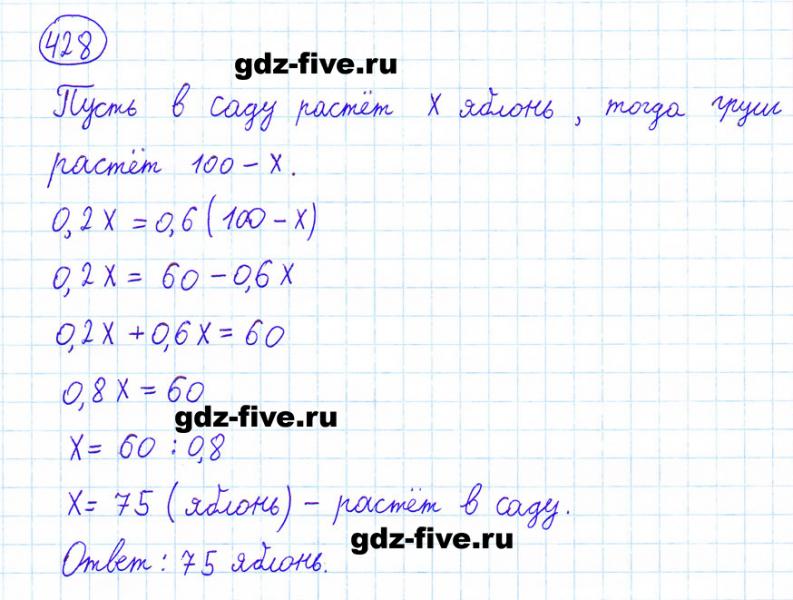 428
gdz-five.ru
Пусть в саду растёт х яблонь, тогда груш
растёт 100 - х.
0,2х = 0,6(100 - х)
0,2х = 60 - 0,6х
0,2х + 0,6х = 60
0,8х = 60
gdz-five.ru
х = 60 : 0,8
х = 75 (яблонь) - растёт в саду.
gdz-five.ru
Ответ: 75 яблонь.